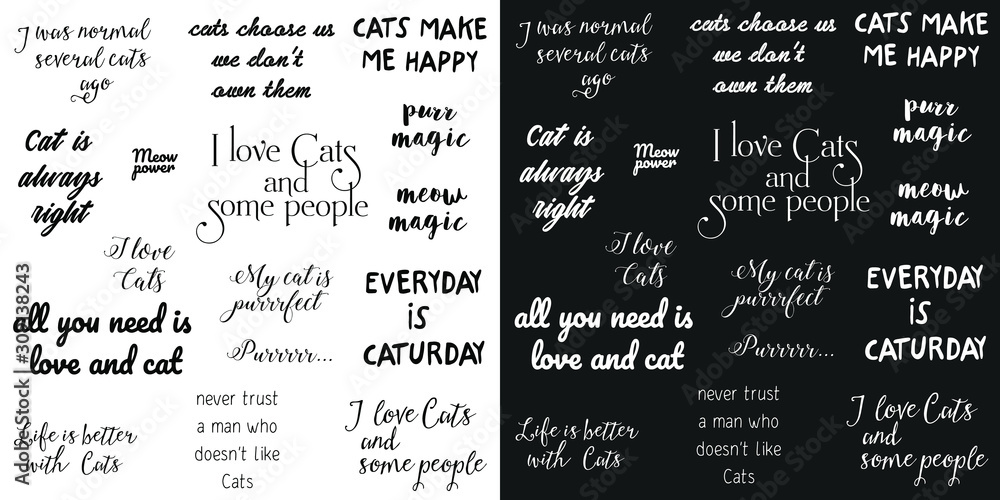 I was normal
several cats
ago
cats choose us
we don't
own them
CATS MAKE
ME HAPPY
Cat is
always
right
Meow
power
I love Cats
and
some people
purr
magic
meow
magic
I love
Cats
My cat is
purrrfect
EVERYDAY
IS
CATURDAY
all you need is
love and cat
Purrrrr...
Life is better
with Cats
never trust
a man who
doesn't like
Cats
I love Cats
and
some people
I was normal
several cats
ago
cats choose us
we don't
own them
CATS MAKE
ME HAPPY
Cat is
always
right
Meow
power
I love Cats
and
some people
purr
magic
meow
magic
I love
Cats
My cat is
purrrfect
EVERYDAY
IS
CATURDAY
all you need is
love and cat
Purrrrr...
Life is better
with Cats
never trust
a man who
doesn't like
Cats
I love Cats
and
some people
Adobe Stock